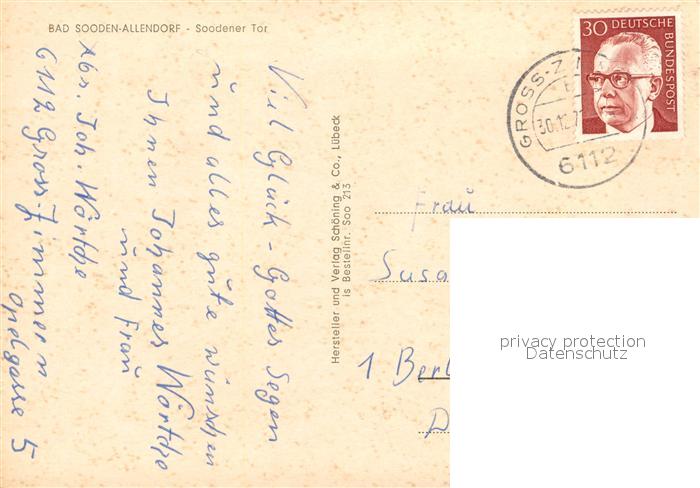 BAD SOODEN-ALLENDORF - Soodener Tor
Viel Glück - Gottes Segen
und alles gute wünschen
Ihnen Johannes Wörtche
und Frau
Abs. Joh. Wörtche
6112 Gross-Zimmern
Opelgasse 5
Hersteller und Verlag Schöning & Co., Lübeck
is Bestellnr. Soo 213
30 DEUTSCHE
BUNDESPOST
GROSS-Z
30.12.7
6112
Frau
Susa
1 Berl
D
privacy protection
Datenschutz